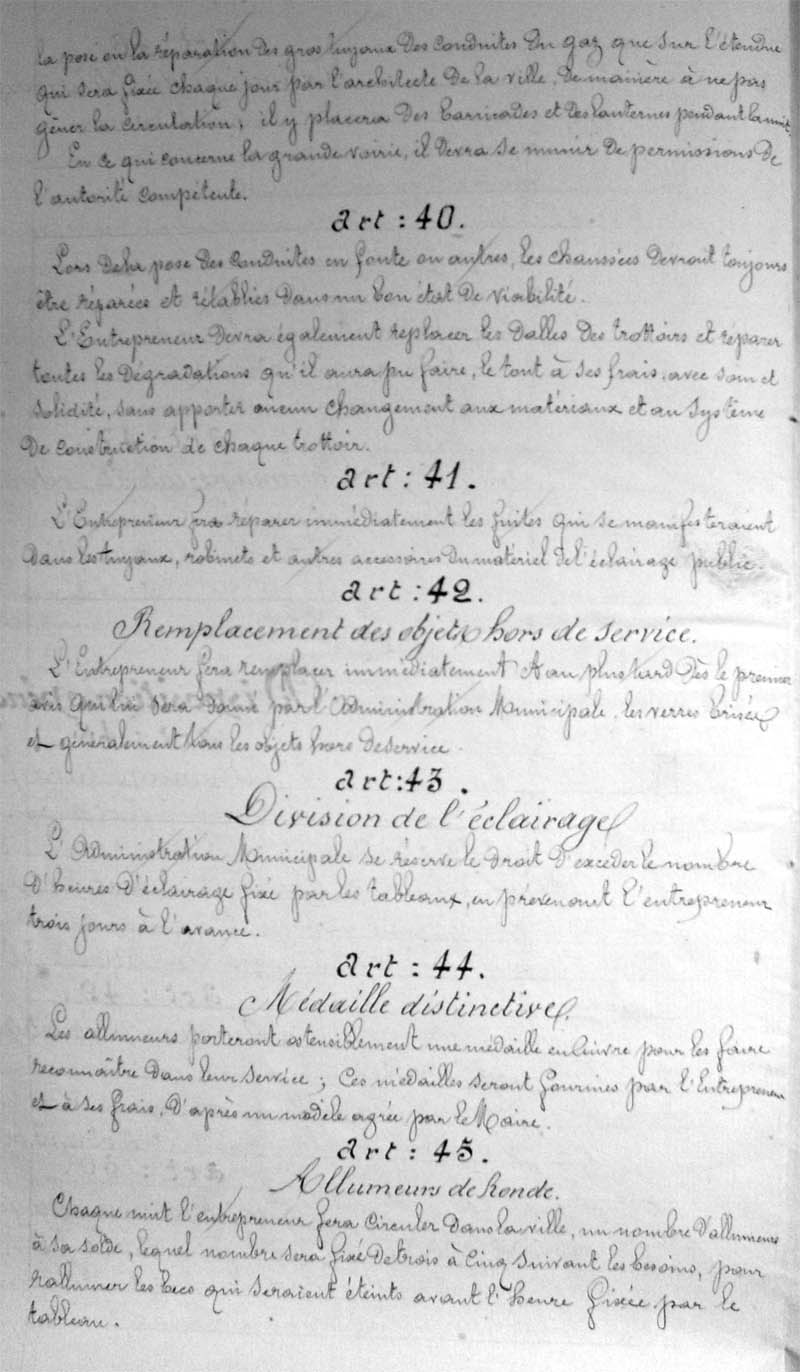 la pose ou la réparation des gros tuyaux des conduites du gaz que sur l'étendue
qui sera fixée chaque jour par l'architecte de la ville, de manière à ne pas
gêner la circulation; il y placera des barricades et des lanternes pendant la nuit.
En ce qui concerne la grande voirie, il devra se munir de permissions de
l'autorité compétente.
art : 40.
Lors de la pose des conduites en fonte ou autres, les chaussées devront toujours
être réparées et rétablies dans un bon état de viabilité.
L'Entrepreneur devra également replacer les dalles des trottoirs et réparer
toutes les dégradations qu'il aura pu faire, le tout à ses frais, avec soin et
solidité, sans apporter aucun changement aux matériaux et au système
de construction de chaque trottoir.
art : 41.
L'Entrepreneur fera réparer immédiatement les fuites qui se manifesteraient
dans les tuyaux, robinets et autres accessoires du matériel de l'éclairage public.
art : 42.
Remplacement des objets hors de service.
L'Entrepreneur fera remplacer immédiatement et au plus tard dès le premier
avis qui lui sera donné par l'Administration Municipale, les verres brisés
et généralement tous les objets hors de service.
art : 43.
Division de l'éclairage
L'Administration Municipale se réserve le droit d'excéder le nombre
d'heures d'éclairage fixé par les tableaux, en prévenant l'entrepreneur
trois jours à l'avance.
art : 44.
Médaille distinctive.
Les allumeurs porteront ostensiblement une médaille en cuivre pour les faire
reconnaître dans leur service; ces médailles seront fournies par l'Entrepreneur
et à ses frais, d'après un modèle agréé par le Maire.
art : 45.
Allumeurs de ronde.
Chaque nuit l'entrepreneur fera circuler dans la ville, un nombre d'allumeurs
à sa solde, lequel nombre sera fixé de trois à cinq suivant les besoins, pour
rallumer les becs qui seraient éteints avant l'heure fixée par le
tableau.